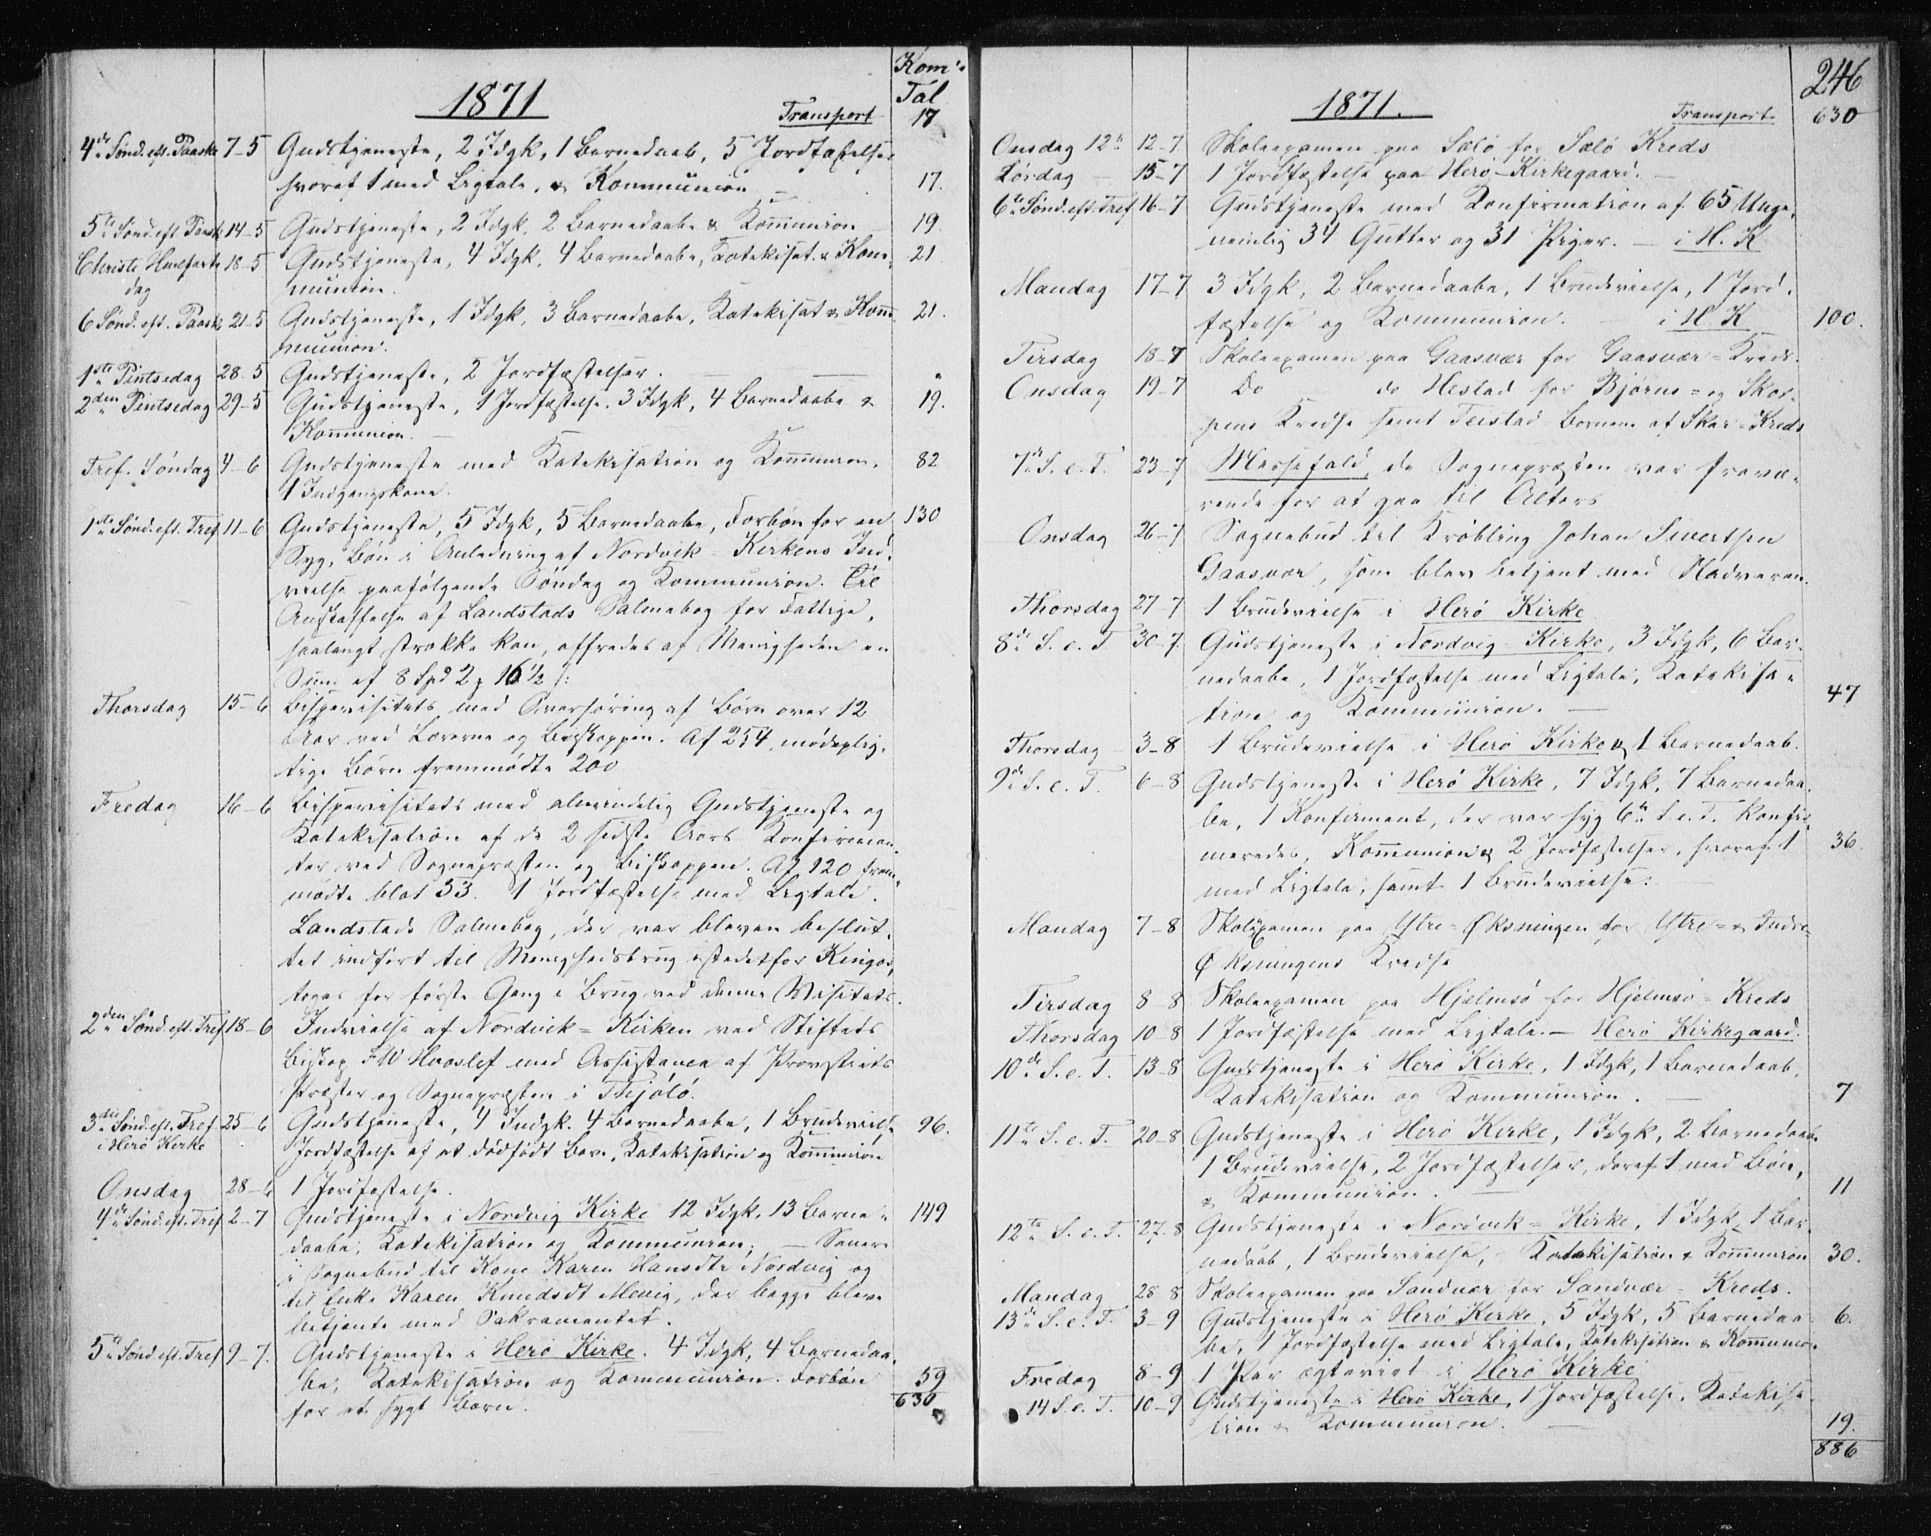 Kom's
Tal
1871
Transport 17
4de Sønd. eft. Paaske 7-5 Gudstjeneste, 2 Idgk, 1 Barnedaab, 5 Jordfæstelser
hvoraf 1 med Ligtale, & Kommunion 17.
5te Sønd. eft. Paask 14-5 Gudstjeneste, 2 Idgk, 2 Barnedaabe & Kommunion 19.
Christi Himelfarts 18-5 Gudstjeneste, 4 Idgk, 4 Barnedaabe, Katekisat. & Kom- 21
dag munion.
6 Sønd. eft. Paask 21-5 Gudstjeneste, 1 Idgk, 3 Barnedaabe, Katekisat & Kom- 21.
munion.
1ste Pintsedag 28-5 Gudstjeneste, 2 Jordfæstelser. "
2den Pintsedag 29-5 Gudstjeneste, 1 Jordfæstelse, 3 Idgk, 4 Barnedaabe & 19.
Kommunion.
Tref. Søndag 4-6 Gudstjeneste med Katekisation og Kommunion. 82
1 Indgangskone.
1ste Sønd. eft. Tref. 11-6 Gudstjeneste, 5 Idgk, 5 Barnedaabe, Forbøn for en 130
Syg, Bøn i Anledning af Nordvik-Kirkens Ind-
vielse paafølgende Søndag og Kommunion. Til
Anskaffelse af Landstads Salmebog for Fattige,
saalangt strække kan, offredes af Menigheden en
Sum af 8 Spd 2 16 1/2 s:
Thorsdag 15-6 Bispevisitats med Overhøring af Børn over 12
Aar ved Lærerne og Biskoppen. Af 254 mødeplig-
tige Børn fremmødte 200
Fredag 16-6 Bispevisitats med almindelig Gudstjeneste og
Katekisation af de 2 sidste Aars Konfirman-
ter ved Sognepræsten og Biskoppen. Af 120 frem-
mødte blot 53. 1 Jordfæstelse med Ligtale.
Landstads Salmebog, der var bleven beslut-
tet indført til Menighedsbrug istedetfor Kingos,
toges for første Gang i Brug ved denne Visitats.
2den Sønd. eft. Tref 18-6 Indvielse af Nordvik-Kirken ved Stiftets
Biskop FW Hvoslef med Assistance af Provstiets
Præster og Sognepræsten i Thjøtø.
3die Sønd. eft. Tref 25-6 Gudstjeneste, 4 Indgk. 4 Barnedaabe, 1 Brudevielse 96.
i Herø Kirke Jordfæstelse af et dødfødt Barn, Katekisation og Kommunion
Onsdag 28-6 1 Jordfæstelse.
4de Sønd. eft. Tref 2-7 Gudstjeneste i Nordvig Kirke 12 Idgk, 13 Barne- 149
daabe, Katekisation og Kommunion; — Senere
i Sognebud til Kone Karen Hansdtr Nordvig og
til Enke Karen Knudsdt Mevig, der begge bleve
betjente med Sakramentet.
5te Sønd. eft. Tref 9-7. Gudstjeneste i Herø Kirke. 4 Idgk, 4 Barnedaa-
be, Katekisation og Kommunion. Forbøn 59
for et sygt Barn. 630
246
1871.
Transport 630
Onsdag 12te 12-7 Skoleexamen paa Sælø for Sælø Kreds
Lørdag 15-7 1 Jordfæstelse paa Herø-Kirkegaard.
6te Sønd. eft. Tref 16-7 Gudstjeneste med Konfirmation af 65 Unge,
nemlig 34 Gutter og 31 Piger. — i H. K
Mandag 17-7 3 Idgk, 2 Barnedaabe, 1 Brudevielse, 1 Jord-
fæstelse og Kommunion. i H. K 100.
Tirsdag 18-7 Skoleexamen paa Gaasvær for Gaasvær-Kreds.
Onsdag 19-7 Do do Hestad for Bjørns- og Skar-
pens Kredse samt Teistad-Børnene af Skar-Kreds
7de S. e. T. 23-7 Messefald, da Sognepræsten var fravæ-
rende for at gaa til Alters
Onsdag 26-7 Sognebud til Krøbling Johan Sivertsen
Gaasvær, som blev betjent med Nadveren.
Thorsdag 27-7 1 Brudevielse i Herø Kirke
8de S. e. T 30-7. Gudstjeneste i Nordvig Kirke, 3 Idgk, 6 Bar-
nedaabe, 1 Jordfæstelse med Ligtale, Katekisa-
tion og Kommunion. — 47
Thorsdag 3-8 1 Brudevielse i Herø Kirke & 1 Barnedaab.
9de S. e. T. 6-8 Gudstjeneste i Herø Kirke, 7 Idgk, 7 Barnedaa-
be, 1 Konfirmant, der var syg 6te S. e. T. konfir-
meredes, Kommunion & 2 Jordfæstelser, hvoraf 1 36.
med Ligtale, samt 1 Brudevielse.
Mandag 7-8 Skolexamen paa Ytre-Øksningen for Ytre- & Indre-
Øksningens Kredse
Tirsdag 8-8 Skoleexamen paa Hjelmsø for Hjelmsø-Kreds
Thorsdag 10-8 1 Jordfæstelse med Ligtale. — Herø Kirkegaard.
10de S. e. T. 13-8 Gudstjeneste i Herø Kirke, 1 Idgk, 1 Barnedaab,
Katekisation og Kommunion. — 7
11te S. e. T. 20-8 Gudstjeneste i Herø Kirke, 1 Idgk, 2 Barnedaabe
1 Brudevielse, 2 Jordfæstelser, deraf 1 med Bøn,
& Kommunion. — 11
12te S. e. T. 27-8 Gudstjeneste i Nordvik-Kirke, 1 Idgk, 1 Bar-
nedaab, 1 Brudevielse, Katekisation & Kommunion 30.
Mandag 28-8 Skoleexamen paa Sandvær for Sandvær-Kreds.
13de S. e. T. 3-9 Gudstjeneste i Herø Kirke, 5 Idgk, 5 Barnedaa- 6.
be, 1 Jordfæstelse med Ligtale, Katekisation & Kommunion
Fredag 8-9 1 Par ægteviet i Herø Kirke
14 S. e. T. 10-9 Gudstjeneste i Herø Kirke, 1 Jordfæstelse, Katekisa-
tion & Kommunion. — 19.
886